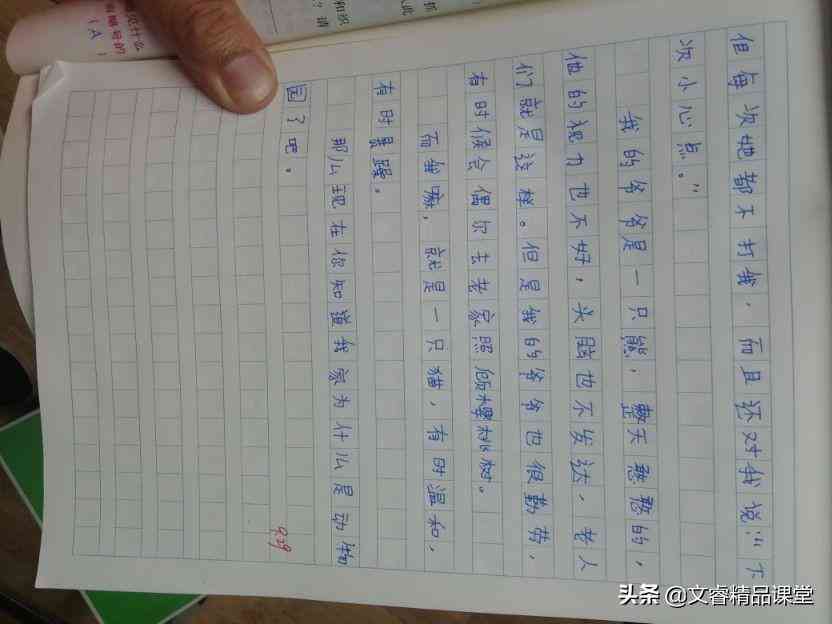 但每次她都不打我，而且还对我说:“下
次小心点。”
我的爷爷是一只熊，整天憨憨的，
他的视力也不好，头脑也不发达，老人
们就是这样。但是我的爷爷也很勤劳，
有时候会偶尔去老家照顾樱桃树。
而我嘛，就是一只猫，有时温和，
有时暴躁。
那么现在你知道我家为什么是动物
园了吧。
9.29
说什么
略号的
(A)
和织
？请
头条 @文睿精品课堂